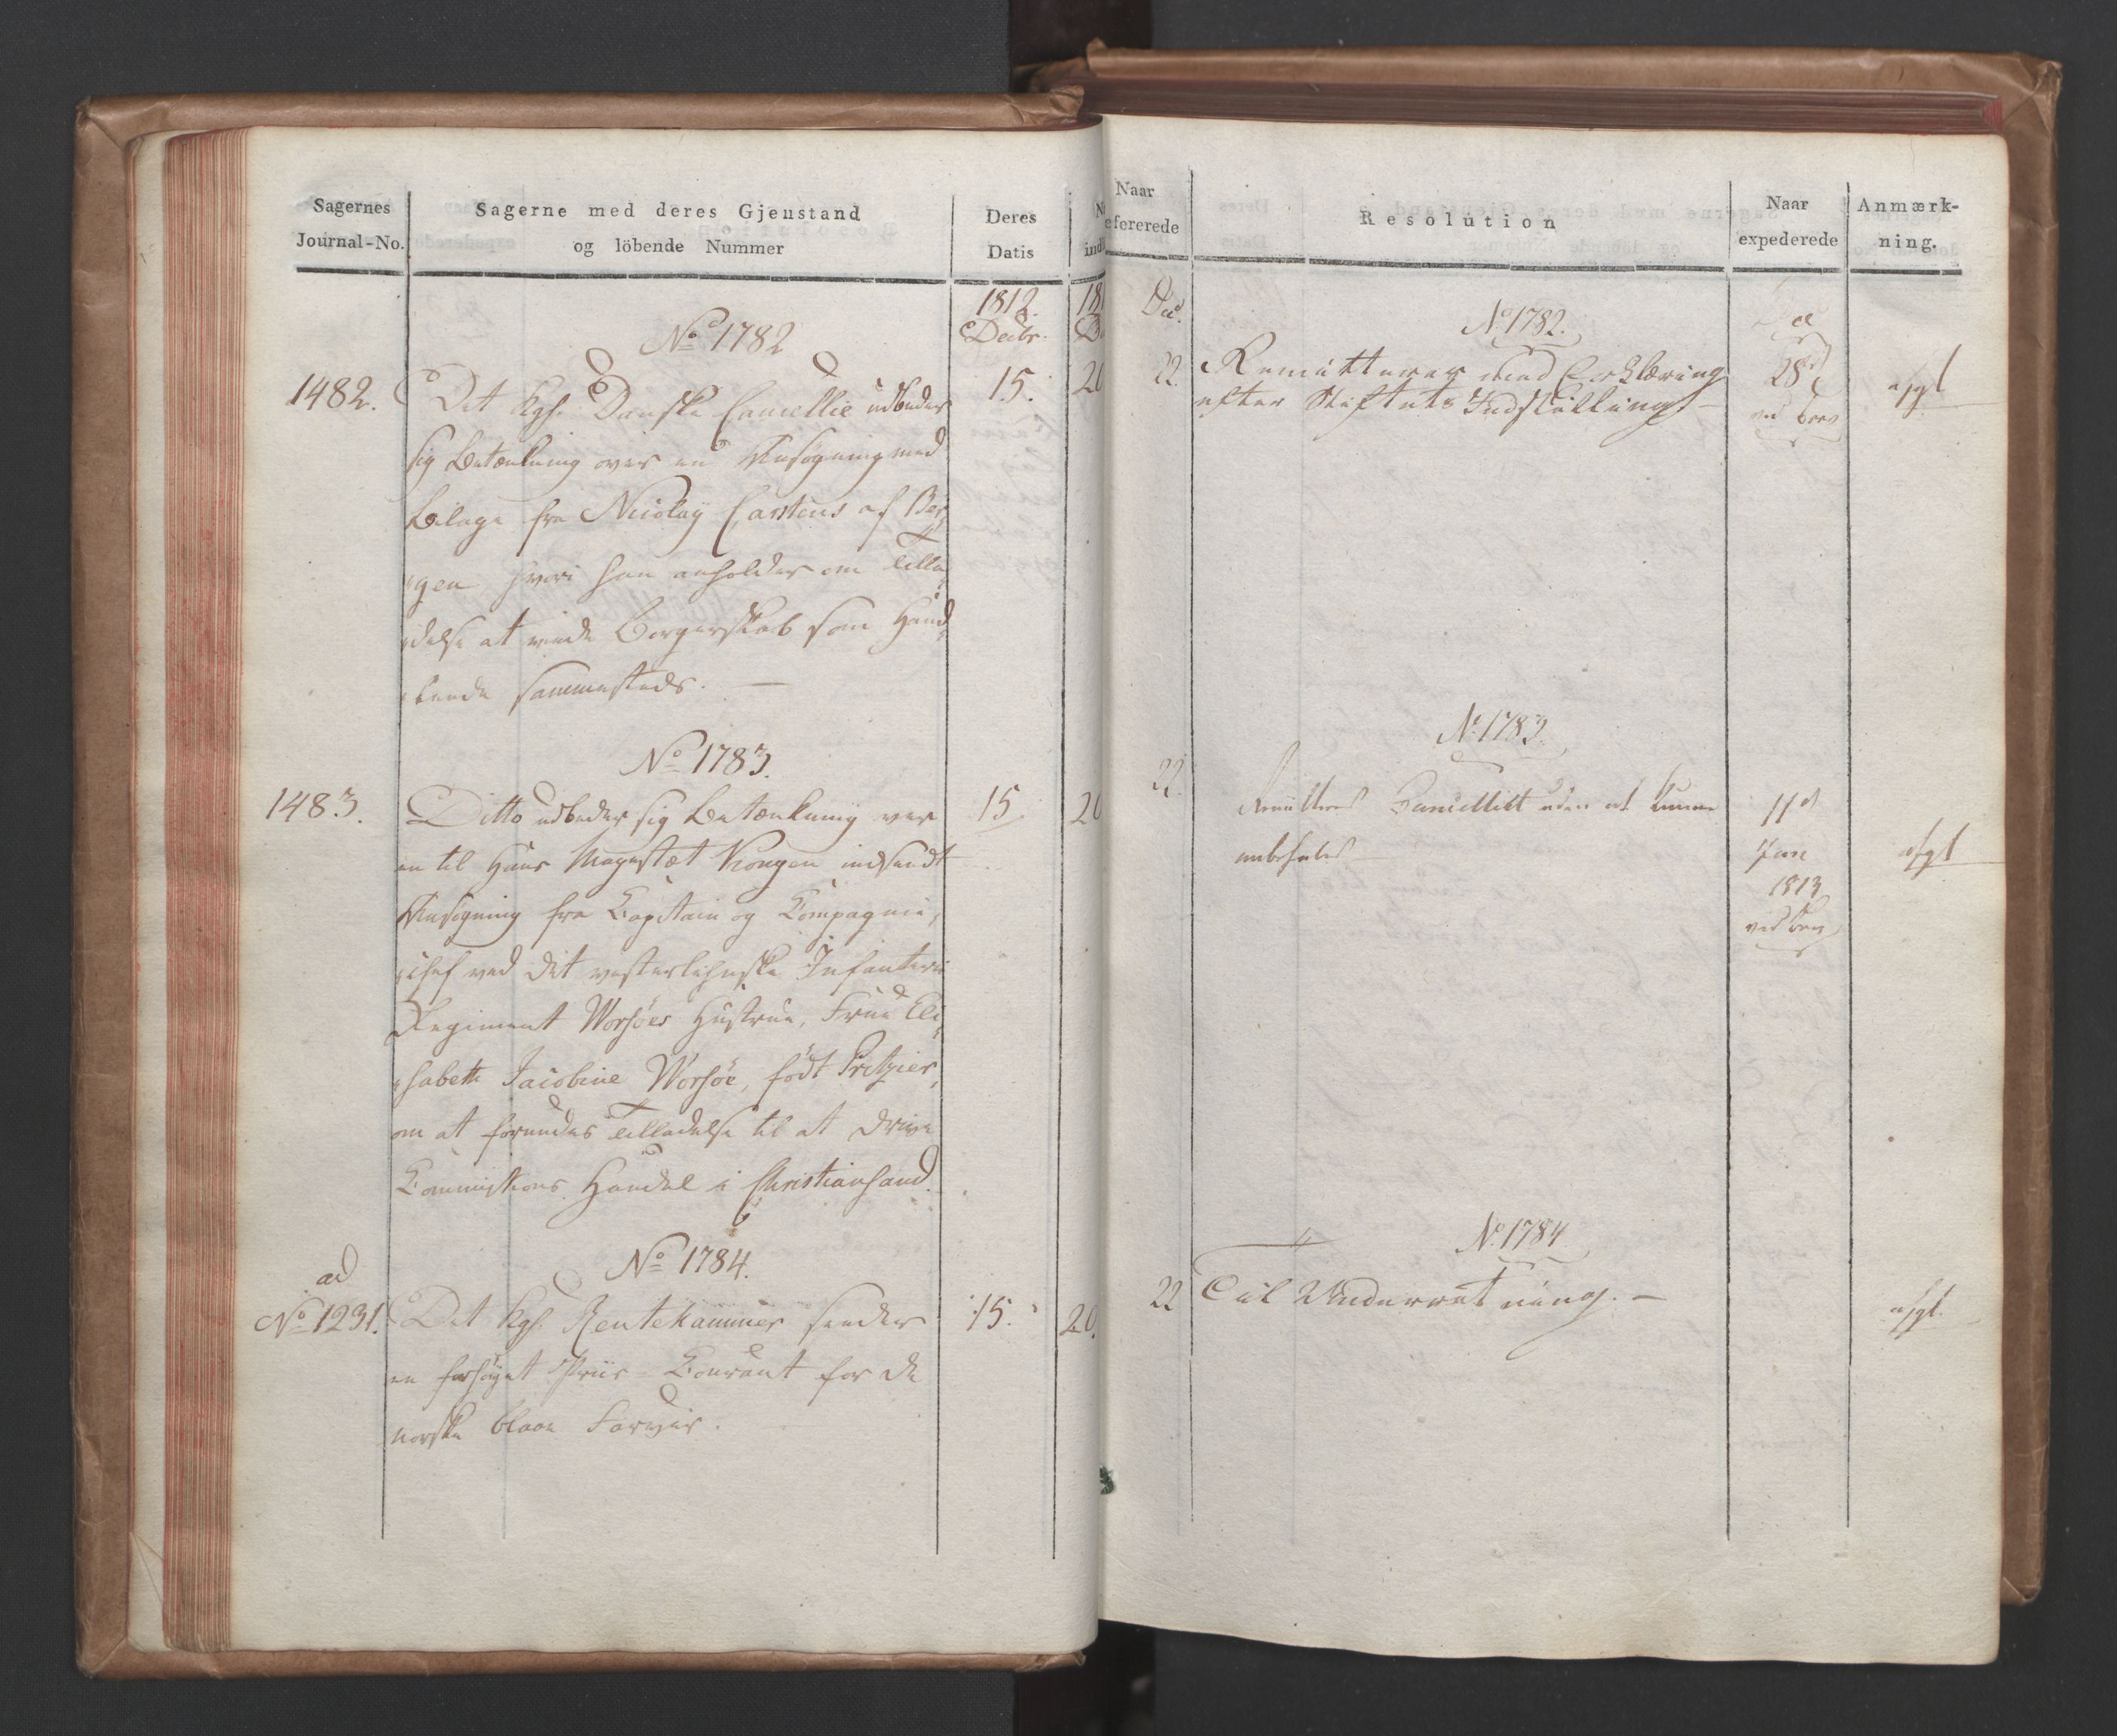 Sagernes
Journal-No.
Sagerne med deres Gjenstand
og löbende Nummer
Deres
Datis
1812.
Decbr.
No 1782
1482.
Det Kgl. Danske Cancellie udbeder
15.
20
sig Betænkning over en Ansøgning med
Bilage fra Nicolay Carstens af Ber,
,gen hvori han anholder om Tilla,
,delse at vinde Borgerskab som Hand,
,lende sammesteds. —
No 1783.
1483.
Ditto udbeder sig Betænkning over
15.
20
en til Hans Magestæt Kongen indsendt
Ansøgning fra Capitain og Compagnie,
,chef ved det vesterlehnske Infanterie
Regiment Worsöes Hustrue, Frue Eli,
,sabeth Jacobine Worsöe, född Pritzier,
om at forundes Tilladelse til at drive
Commissions Handel i Christiansand.
No 1784.
ad
No 1231.
Det Kgl. Rentekammer sender
15.
20.
en forhøyet Priis-Courant for de
norske blaae Farver.
Naar
refererede
Resolution
Naar
expederede
Anmærk-
ning.
Dec.
No 1782.
22.
Remitteres med Erklæring
28
afgl
efter Stiftets Indstilling. —
ved Brev
No 1783.
22.
Remitteres Cancelliet uden at kunne
11
anbefales
Jan
afgl
1813
ved Brev
No 1784
22
Til Underretning. —
afgl.